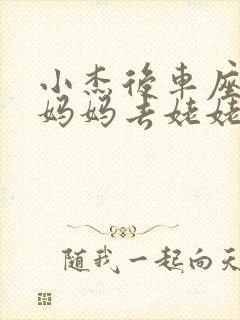 小杰後車座
妈妈去姥姥
随我一起向天